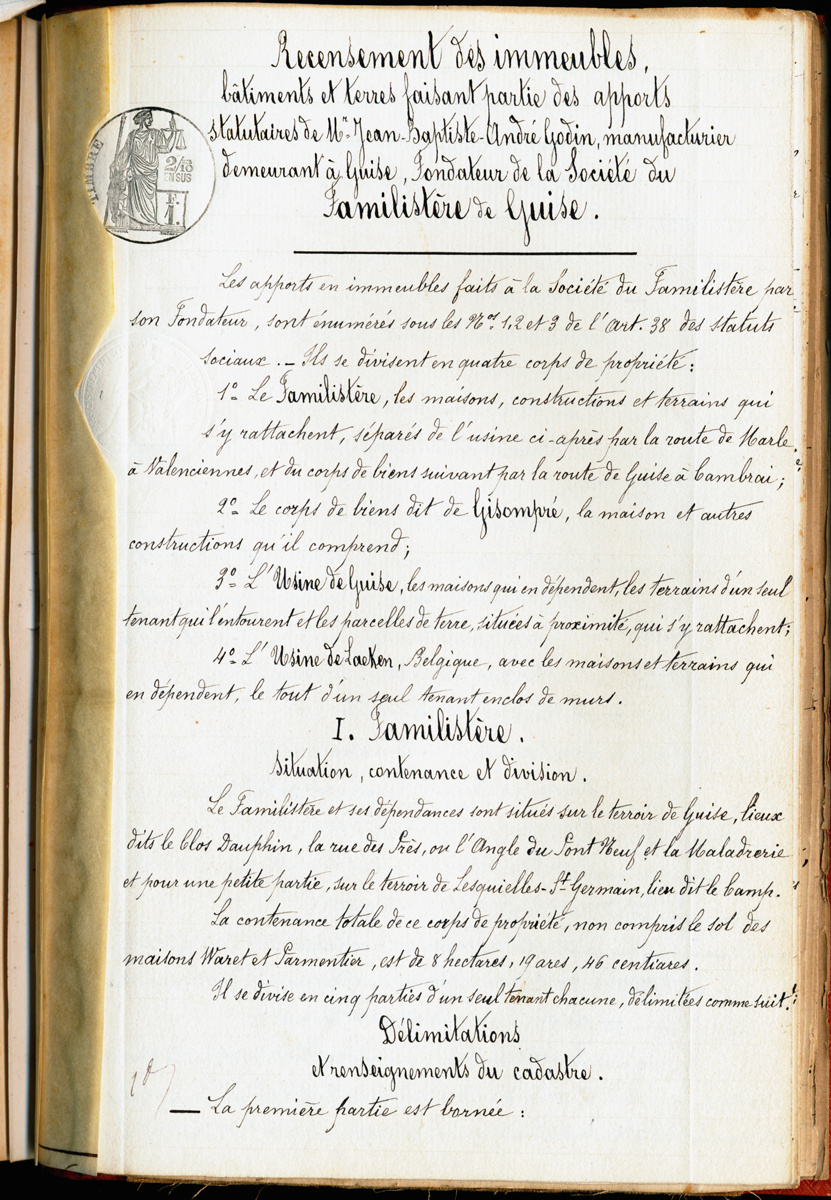 Recensement des immeubles,
bâtiments et terres faisant partie des apports
statutaires de Mr. Jean-Baptiste-André Godin, manufacturier
demeurant à Guise, Fondateur de la Société du
Familistère de Guise.
TIMBRE
2/10
EN SUS
F.
1.
Les apports en immeubles faits à la Société du Familistère par
son Fondateur, sont énumérés sous les Nos. 1, 2 et 3 de l'art. 38 des statuts
sociaux. _ Ils se divisent en quatre corps de propriété:
1o. Le Familistère, les maisons, constructions et terrains qui
s'y rattachent, séparés de l'usine ci-après par la route de Marle
à Valenciennes, et du corps de biens suivant par la route de Guise à Cambrai;
2o. Le corps de biens dit de Gisompré, la maison et autres
constructions qu'il comprend;
3o. L'Usine de Guise, les maisons qui en dépendent, les terrains d'un seul
tenant qui l'entourent et les parcelles de terre, situées à proximité, qui s'y rattachent;
4o. L'Usine de Laeken, Belgique, avec les maisons et terrains qui
en dépendent, le tout d'un seul tenant enclos de murs.
I. Familistère.
Situation, contenance et division.
Le Familistère et ses dépendances sont situés sur le terroir de Guise, lieux
dits le Clos Dauphin, la rue des Près, ou l'Angle du Pont Neuf et la Maladrerie
et pour une petite partie, sur le terroir de Lesquielles-St. Germain, lieu dit le Camp.
La contenance totale de ce corps de propriété, non compris le sol des
maisons Waret et Parmentier, est de 8 hectares, 19 ares, 46 centiares.
Il se divise en cinq parties d'un seul tenant chacune, délimitées comme suit:
Délimitations
et renseignements du cadastre.
_ La première partie est bornée: